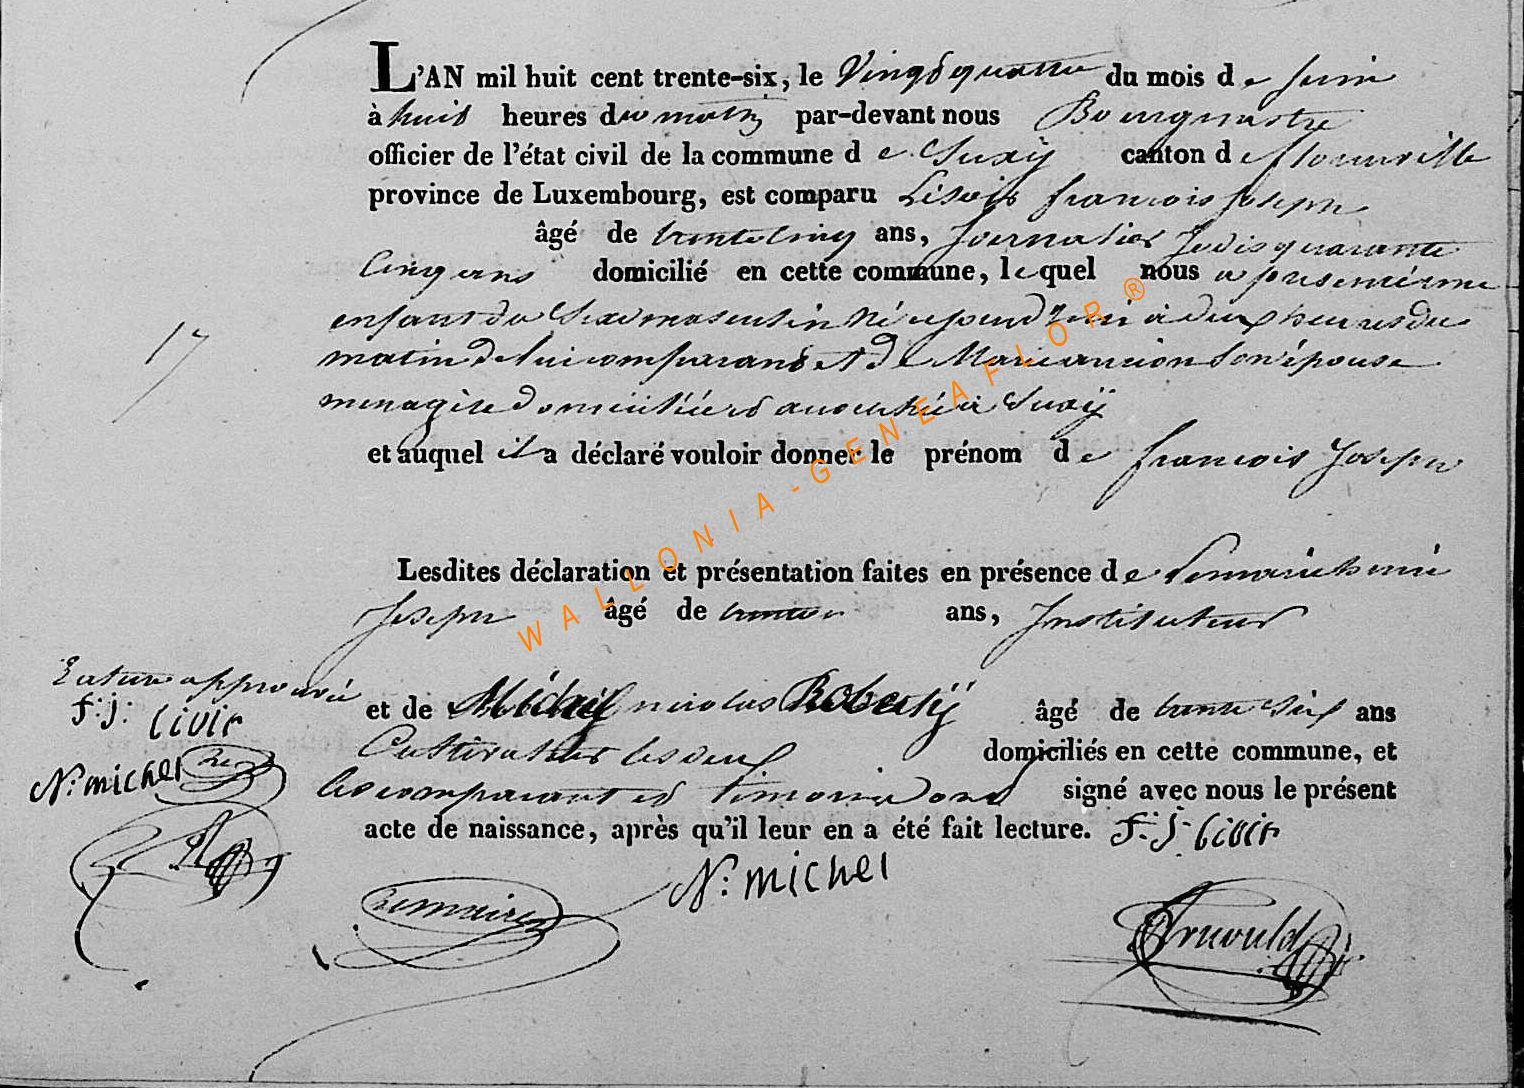 L'AN mil huit cent trente-six, le Vingt quatre du mois de Juin
à huit heures du matin par-devant nous Bourgmestre
officier de l'état civil de la commune de Suxÿ canton de florenville
province de Luxembourg, est comparu françois joseph
âgé de trente cinq ans, Journalier Je dis quarante
Cinq ans domicilié en cette commune, lequel nous a presenté une
enfant du Sexe masculin Né a deux heures du
matin de lui comparant et de Marie son épouse
menagère à Suxÿ
et auquel il a déclaré vouloir donner le prénom de françois Joseph
17
Lesdites déclaration et présentation faites en présence de
Joseph âgé de ans, Instituteur
Rature approuvée
et de Michel nicolas âgé de trente Six ans
F: J: Livir
Cultivateur les deux domiciliés en cette commune, et
N: michel
les comparant et temoins ont signé avec nous le présent
acte de naissance, après qu'il leur en a été fait lecture. F: J: Livir
N: michel
Remaire
WALLONIA-GENEAFLOR ®